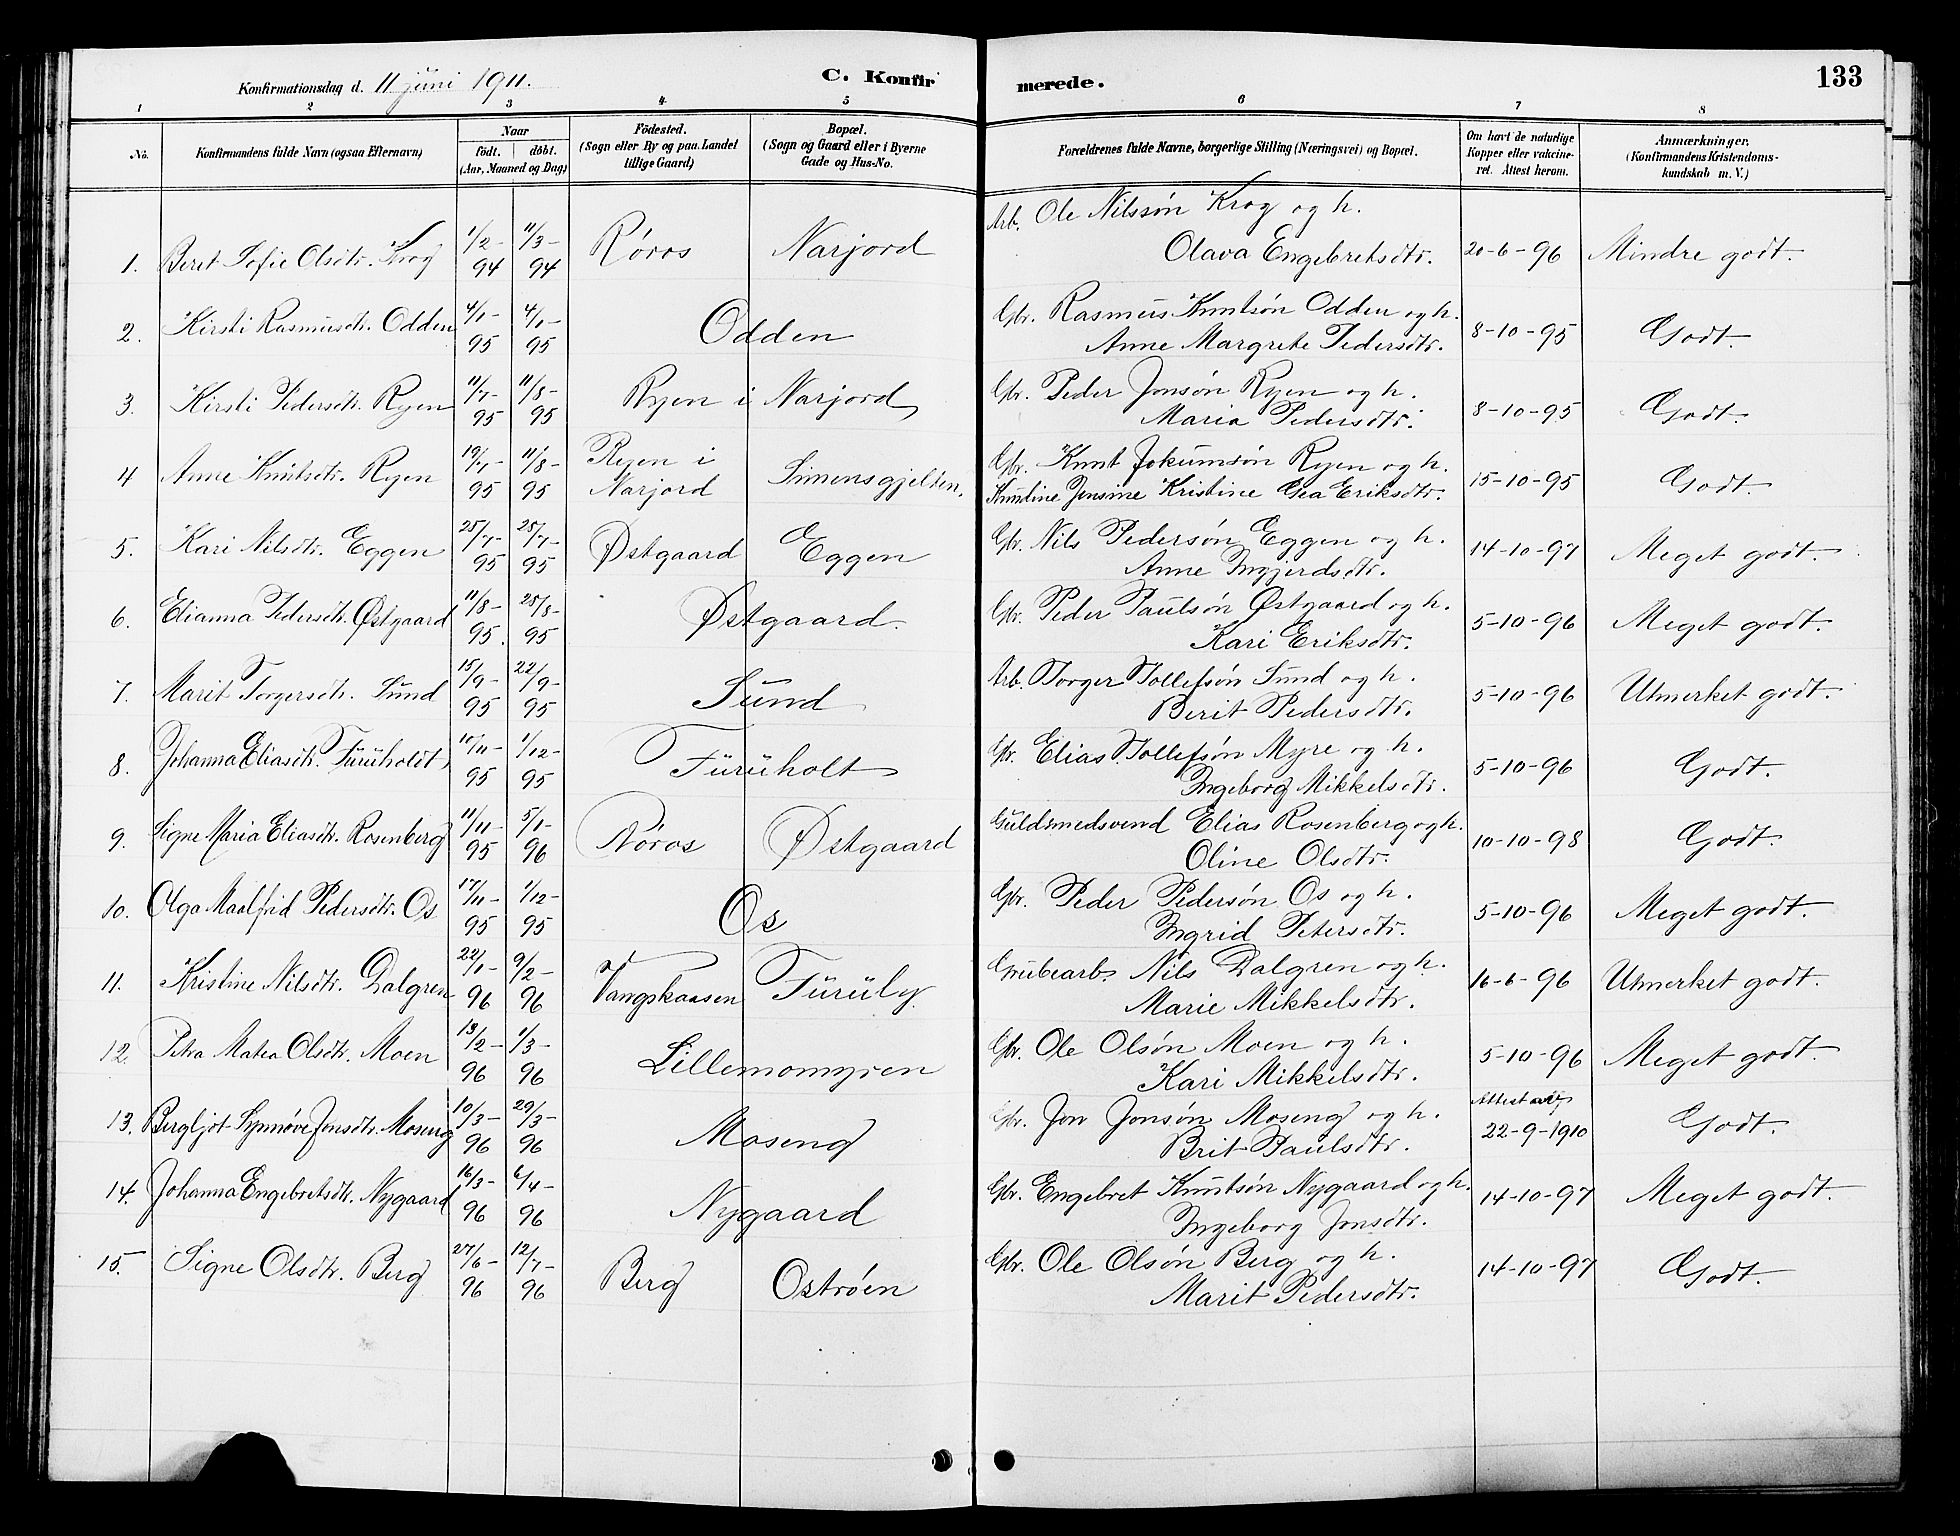 Konfirmationsdag d. 11 juni 1911. C. Konfirmerede. 133
1 2 3 4 5 6 7 8
No. Konfirmandens fulde Navn (ogsaa Efternavn) Naar födt. döbt. (Aar, Maaned og Dag) Födested. (Sogn eller By og paa Landet tillige Gaard) Bopæl. (Sogn og Gaard eller i Byerne Gade og Hus-No. Forældrenes fulde Navne, borgerlige Stilling (Næringsvei) og Bopæl. Om havt de naturlige Kopper eller vakcineret. Attest herom. Anmærkninger. (Konfirmandens Kristendomskundskab m. V.)
Arb. Ole Nilssøn Krog og h.
1. Beret Sofie Olsdtr. Krog 1/2-94 11/3-94 Røros Narjord Olava Engebretsdtr. 20-6-96 Mindre godt.
2. Kirsti Rasmusdtr. Odden 4/1-95 4/1-95 Odden Gbr. Rasmus Knutsøn Odden og h. 8-10-95 Godt.
Anne Margrete Pedersdtr.
3. Kirsti Pedersdtr. Ryen 11/7-95 11/8-95 Ryen i Narjord Gbr. Peder Jonsøn Ryen og h. 8-10-95 Godt.
Maria Pedersdtr.
4 Anne Knutsdtr. Ryen 19/7-95 11/8-95 Ryen i Narjord Simensgjelten. Gbr. Knut Jokumsøn Ryen og h. 15-10-95 Godt.
Jensine Kristine Gea Eriksdtr.
5. Kari Nilsdtr. Eggen 25/7-95 28/7-95 Østgaard Eggen Gbr. Nils Pedersøn Eggen og h. 14-10-97 Meget godt.
Anne Ingjerdsdtr.
6. Elianna Pedersdtr. Østgaard 11/8-95. 25/8-95 Østgaard. Gbr. Peder Paulsøn Østgaard og h. 5-10-96 Meget godt.
Kari Eriksdtr.
7. Marit Torgersdtr. Sund 15/9-95 22/9-95 Sund Arb. Torger Tollefsøn Sund og h. 5-10-96 Utmerket godt.
Berit Pedersdtr.
8. Johanna Eliasdtr. Furuholdt 10/11-95 1/12-95 Furuholt Gbr. Elias Tollefsøn Myre og h. 5-10-96 Godt.
Ingeborg Mikkelsdtr.
9. Signe Maria Eliasdtr. Rosenberg 11/11-95 5/1-96 Røros Østgaard Guldsmedsvend Elias Rosenberg og h. 10-10-98 Godt.
Oline Olsdtr.
10. Olga Maalfrid Pedersdtr. Os 17/11-95 1/12-95 Os Gbr. Peder Pedersøn Os og h. 5-10-96 Meget godt.
Ingrid Petersdtr.
11. Kristine Nilsdtr. Dalgren 22/1-96 9/2-96 Vangskaasen Furuly Grubearb. Nils Dalgren og h. 16-6-96 Utmerket godt.
Marie Mikkelsdtr.
12. Petra Matea Olsdtr. Moen 13/2-96 1/3-96 Lillemomyren Gbr. Ole Olsøn Moen og h. 5-10-96 Meget godt.
Kari Mikkelsdtr.
13. Bergljot Synnøve Jonsdtr. Moseng 10/3-96 29/3-96 Moseng Gbr. Jon Jonsøn Moseng og h. Attest 22-9-1910 Godt.
Brit Paulsdtr.
14. Johanna Engebretsdtr. Nygaard 16/3-96 6/4-96 Nygaard Gbr. Engebret Knutsøn Nygaard og h. 14-10-97 Meget godt.
Ingeborg Jonsdtr.
15. Signe Olsdtr. Berg 27/6-96 12/7-96 Berg Ostrøen Gbr. Ole Olsøn Berg og h. 14-10-97 Godt.
Marit Pedersdtr.